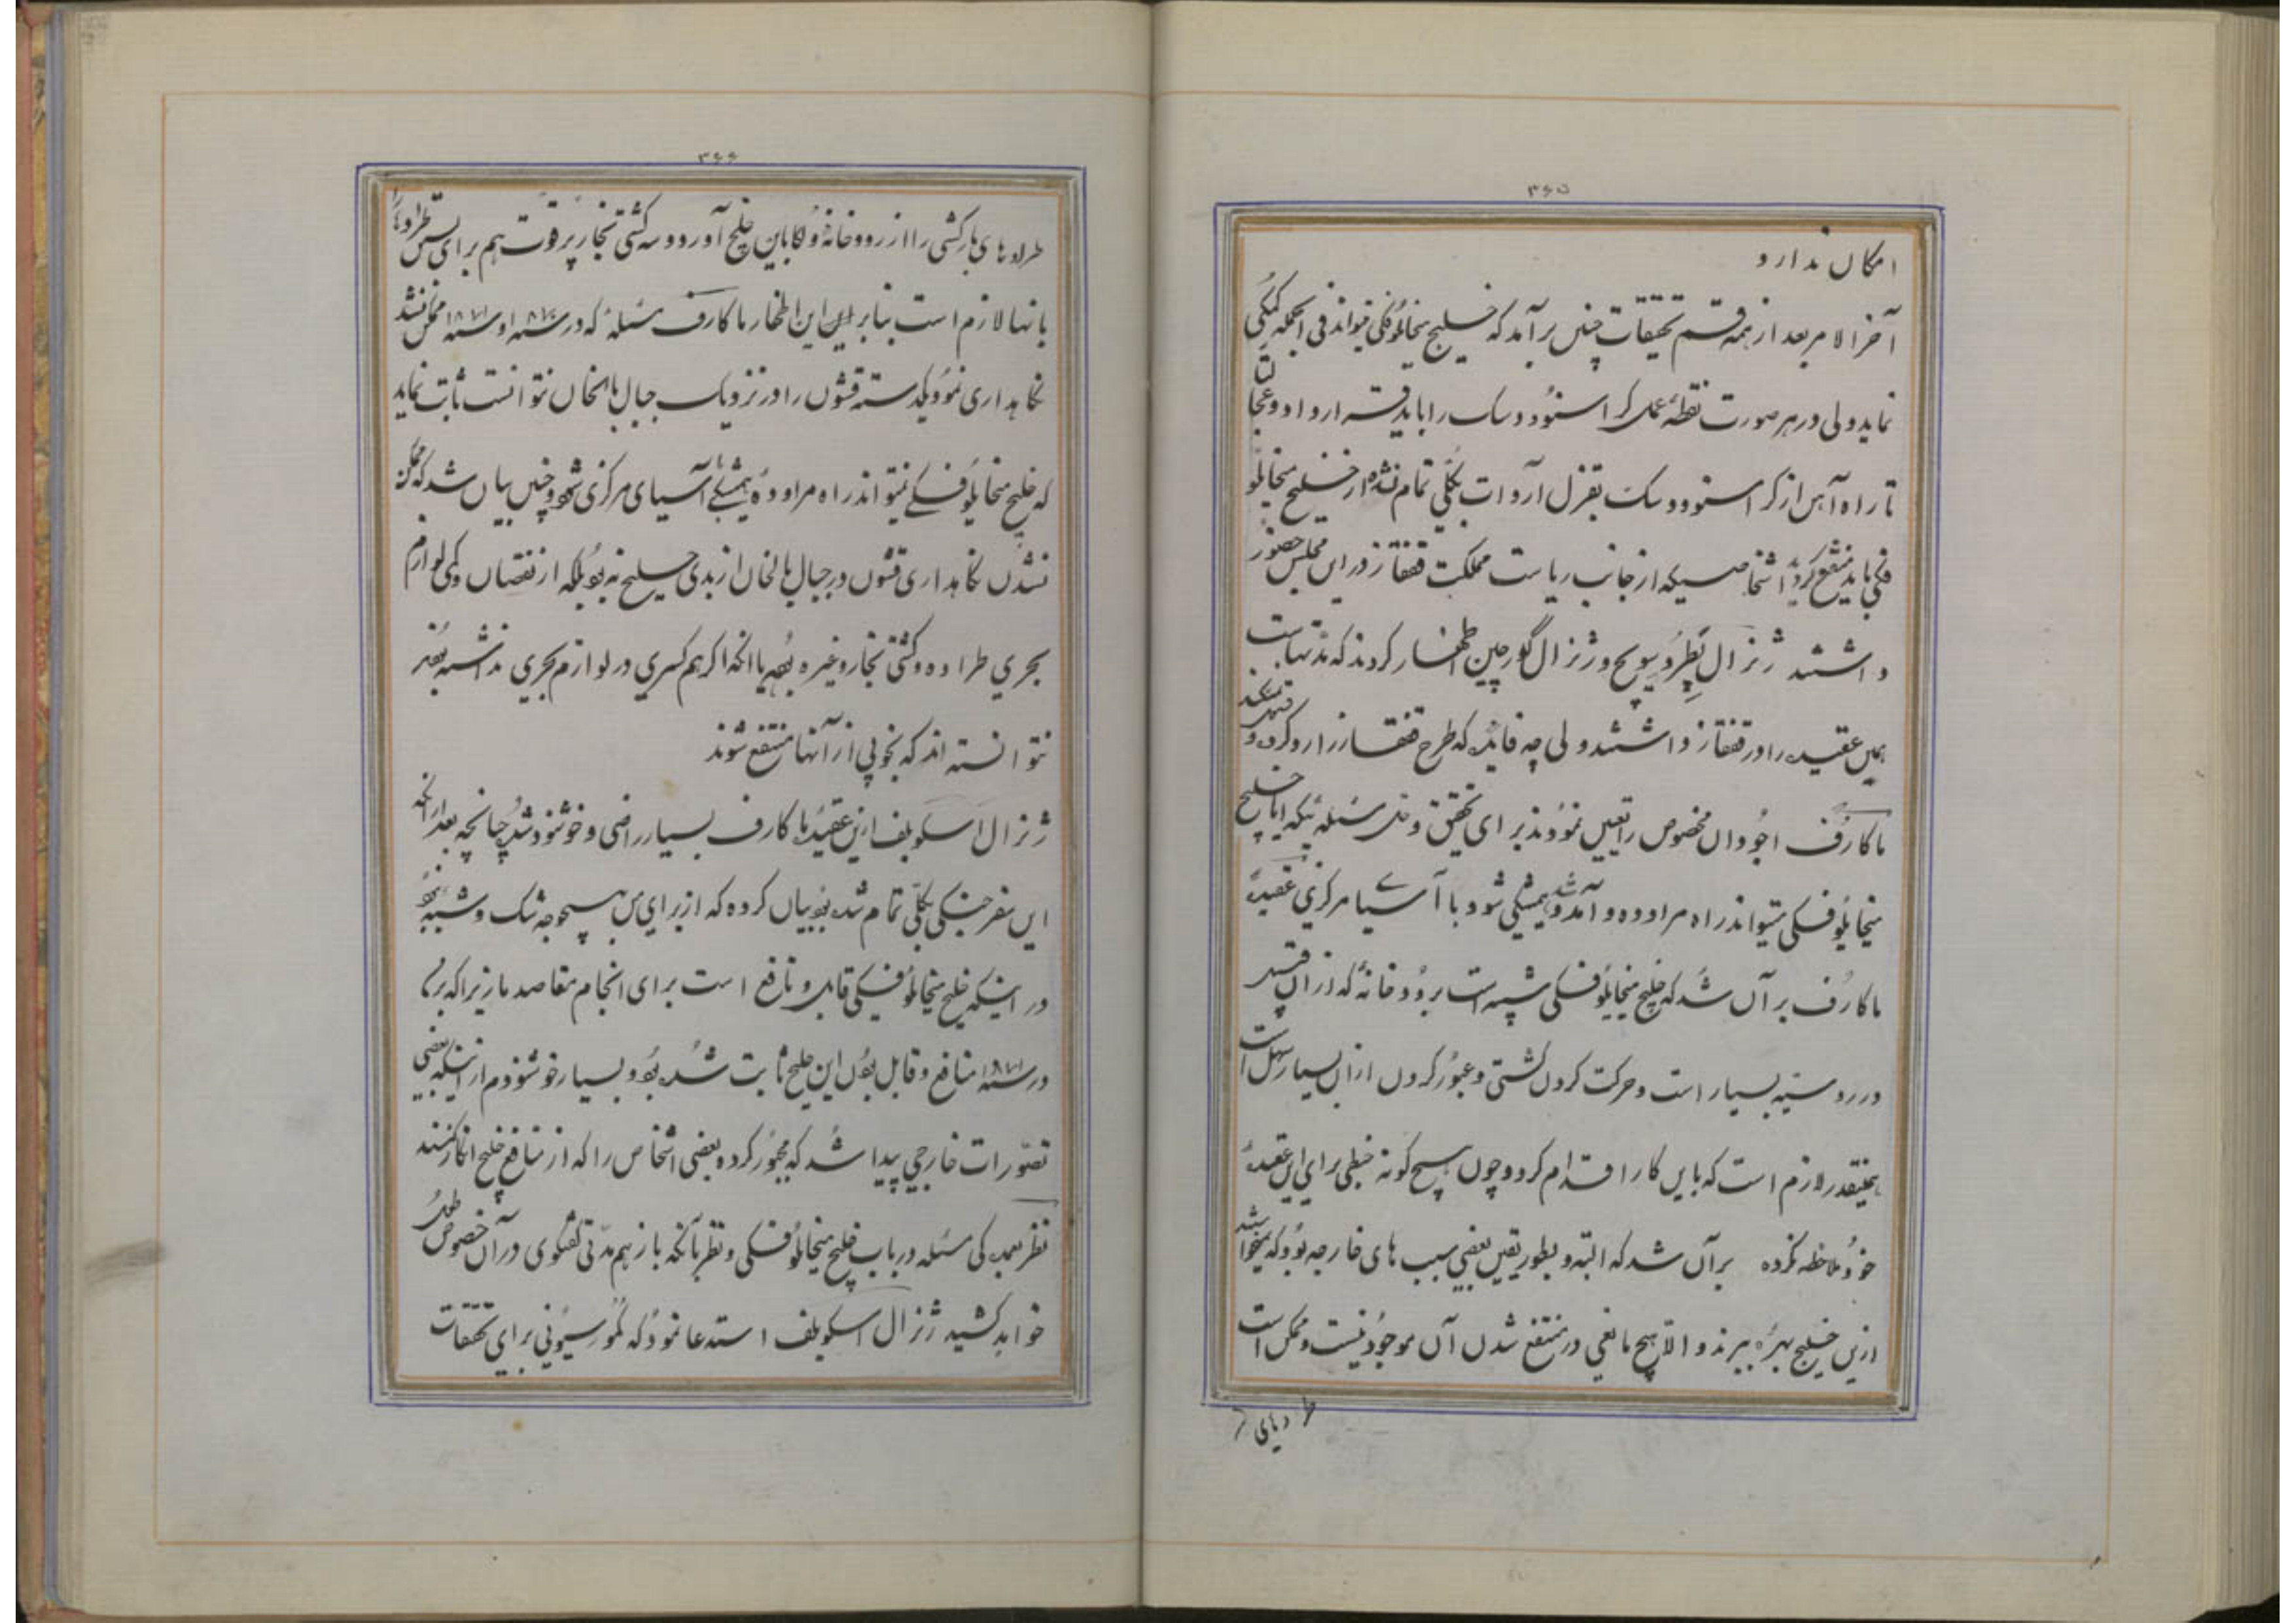 ۳۶۵
امکان ندارد
آخرالامر بعد از همه قسم تحقیقات چنین برآمد که خلیج میخایلوفسکی میتواند فی الجمله کمکی
نماید ولی در هر صورت نقطهٔ عمل کراسنوودسک را باید قرار داد و عجالتا
تا راه آهن از کراسنوودسک بقزل آروات بکلی تمام نشده از خلیج میخایلو
فسکی باید منتفع گردید اشخاصیکه از جانب ریاست مملکت قفقاز در این مجلس حضور
داشتند ژنرال پطرویویچ و ژنرال گورچین اظهار کردند که مدتهاست
همین عقیده را در قفقاز داشتند ولی چه فایده که طرح قفقاز را رد کرده و
ماکارف اجودان مخصوص را تعیین نمودند برای تحقیق و حل مسئله اینکه آیا خلیج
میخایلوفسکی میتواند راه مراوده و آمد و شد همیشگی شود با آسیا مرکزی عقیدهٔ
ماکارف بر آن شد که خلیج میخایلوفسکی شبیه است برودخانهٔ که از آن قبیل
در روسیه بسیار است و حرکت کردن کشتی و عبور کردن از آن بسیار سهل است
همینقدر لازم است که باین کار اقدام کرد و چون هیچ گونه خبطی برای این عقیدهٔ
خود ملاحظه نکرده بر آن شد که البته و بطور یقین بعضی سبب های خارجه بود که نمیخواستند
ازین خلیج بهره ببرند و الا هیچ مانعی در منتفع شدن آن موجود نیست و ممکن است
طراده‌های
۳۶۶
طراده های بارکشی را از رودخانهٔ ولکا باین خلیج آورد و سه کشتی تجار پر قوت هم برای یدک طراده‌ها
بانها لازم است بنابر این اظهار ماکارف مسئلهٔ که در سنه ۱۸۷۰ و سنه ۱۸۷۱ ممکن نشد
نکاهداری نمود یکدسته قشون را در نزدیک جبال بالخان نتوانست ثابت نماید
که خلیج میخایلوفسکی نمیتواند راه مراودهٔ همیشگی با آسیای مرکزی شود و چنین بیان شد که ممکن
نشدن نکاهداری قشون در جبال بالخان از بدی خلیج نبود بلکه از نقصان و کمی لوازم
بحری طراده و کشتی تجار و غیره بود یا انکه اکر هم کسری در لوازم بحری نداشته بودند
نتوانسته اند که بخوبی از آنها منتفع شوند
ژنرال اسکوبلف ازین عقیدهٔ ماکارف بسیار راضی و خوشنود شد چنانچه بعد از انکه
این سفر جنگی بکلی تمام شده بود بیان کرده که از برای من بهیچوجه شک و شبهه نبود
در اینکه خلیج میخایلوفسکی قابل و نافع است برای انجام مقاصد ما زیرا که برای
در سنه ۱۸۷۱ منافع و قابل بودن این خلیج ثابت شده بود و بسیار خوشنودم از اینکه بعضی
تصورات خارجی پیدا شد که مجبور کرده بعضی اشخاص را که از منافع خلیج انکار کنند
نظر بعمدکی مسئله در باب خلیج میخایلوفسکی و نظر بآنکه باز هم مدتی گفتگوی در آن خصوص طول
خواهد کشید ژنرال اسکوبلف استدعا نمود که کمورسیونی برای تحقیقات